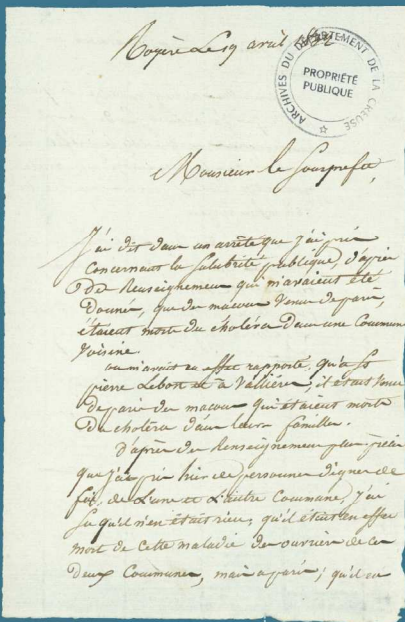 Royère Le 9 avril 1832
ARCHIVES DU DÉPARTEMENT DE LA CREUSE
PROPRIÉTÉ
PUBLIQUE
Monsieur le Sousprefet,
J'ai dit dans un arrêté que j'ai pris
concernant la salubrité publique, d'après
des Renseignemens qui m'avaient été
Donné, que des macons venus de paris,
étaient morts du choléra Dans une Commune
Voisine.
on m'avait en effet rapporté, qu'a St
pierre Lebost et à Vallière, il était venu
de paris des macons qui étaient morts
Du choléra dans leurs familles.
D'après des Renseignemens plus précis
que j'ai pris hier de personnes dignes de
foi, de L'une et L'autre Commune, j'ai
Su qu'il n'en était rien, qu'il était en effet
mort de Cette maladie des ouvriers de ces
deux Communes, mais a paris; qu'il en